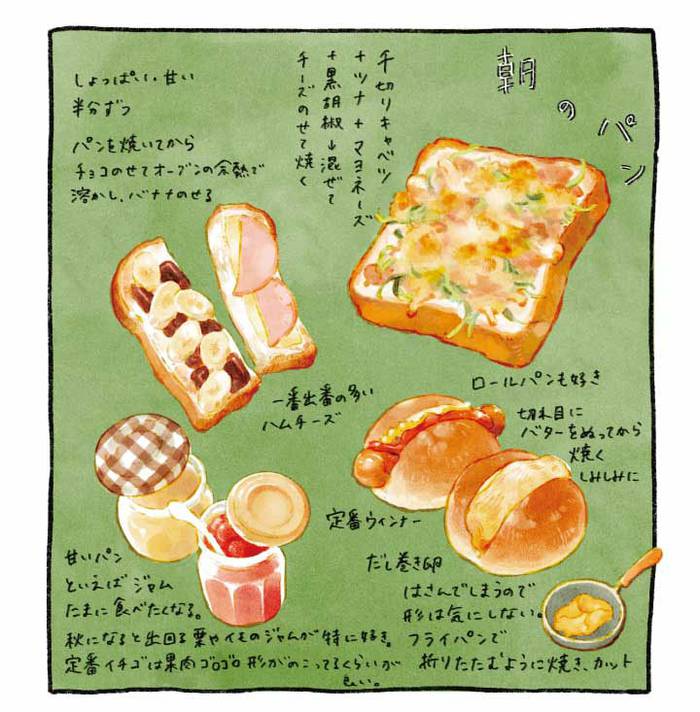 朝のパン
千切りキャベツ
+ツナ+マヨネーズ
+黒胡椒↓混ぜて
チーズのせて焼く
しょっぱい、甘い
半分ずつ
パンを焼いてから
チョコのせてオーブンの余熱で
溶かし、バナナのせる
一番出番の多い
ハムチーズ
ロールパンも好き
切れ目に
バターをぬってから
焼く
しみしみに
定番ウィンナー
だし巻き卵
はさんでしまうので
形は気にしない。
フライパンで
折りたたむように焼き、カット
甘いパン
といえばジャム
たまに食べたくなる。
秋になると出回る栗やイモのジャムが特に好き。
定番イチゴは果肉ゴロゴロ形がのこってるくらいが
良い。